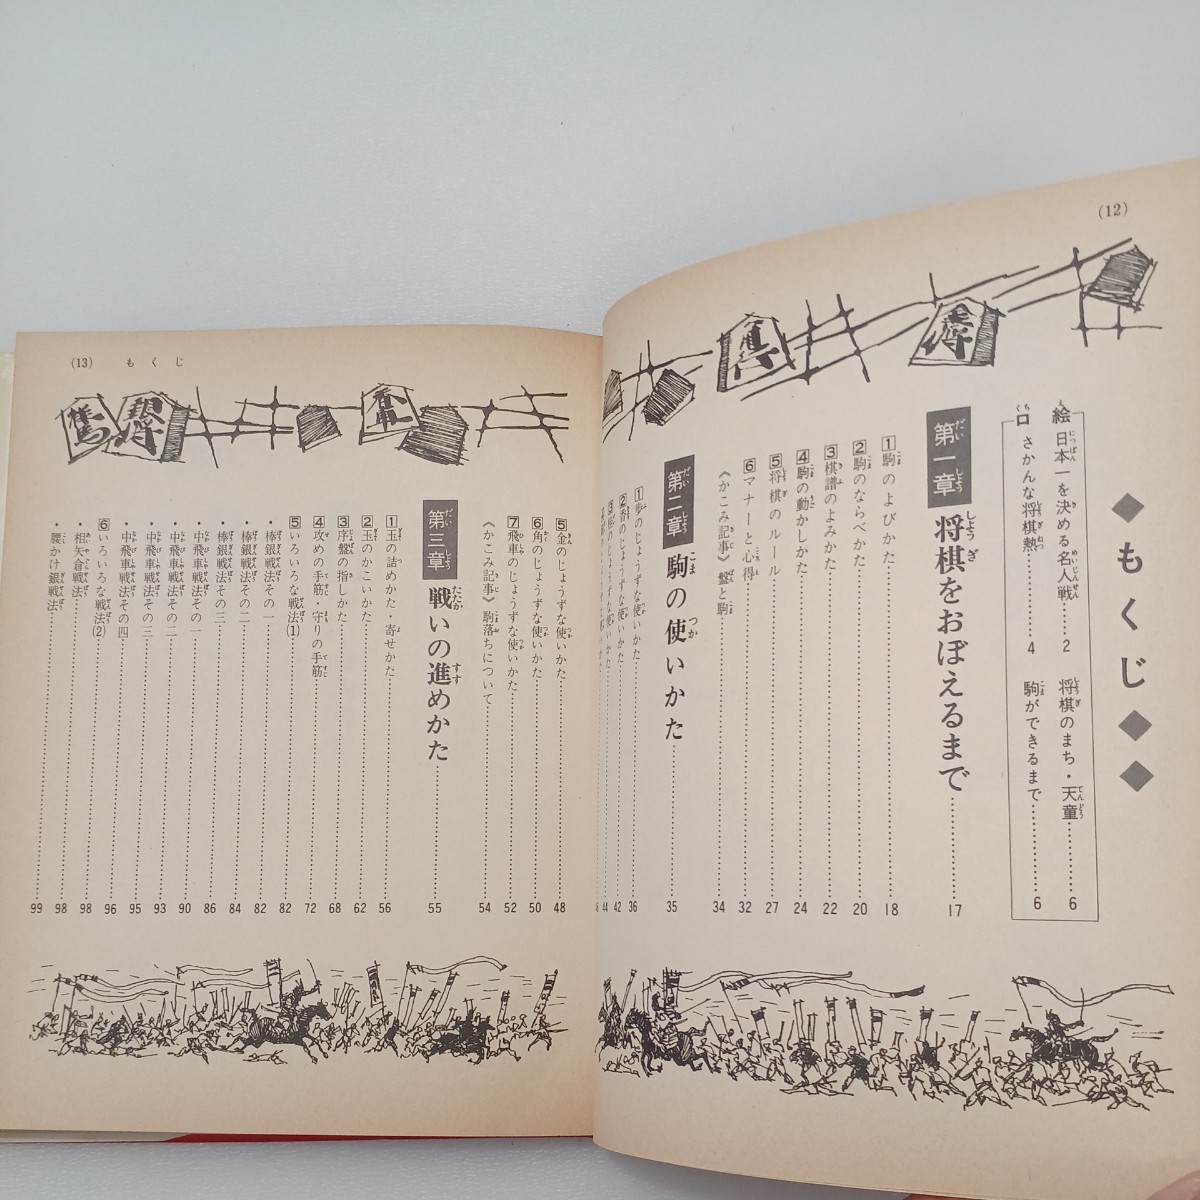 (12)
◆もくじ◆◆
口絵
日本一を決める名人戦……2
将棋のまち・天童……6
さかんな将棋熱……4
駒ができるまで……6
第一章 将棋をおぼえるまで……17
1駒のよびかた……18
2駒のならべかた……20
3棋譜のよみかた……22
4駒の動かしかた……24
5将棋のルール……27
6マナーと心得……32
《かこみ記事》盤と駒……34
第二章 駒の使いかた……35
1歩のじょうずな使いかた……36
2香のじょうずな使いかた……42
3桂のじょうずな使いかた……44
(13) もくじ
5金のじょうずな使いかた……48
6角のじょうずな使いかた……50
7飛車のじょうずな使いかた……52
《かこみ記事》駒落ちについて……54
第三章 戦いの進めかた……55
1玉の詰めかた・寄せかた……56
2玉のかこいかた……62
3序盤の指しかた……68
4攻めの手筋・守りの手筋……72
5いろいろな戦法(1)……82
・棒銀戦法その一……82
・棒銀戦法その二……84
・棒銀戦法その三……86
・中飛車戦法その一……90
・中飛車戦法その二……93
・中飛車戦法その三……95
・中飛車戦法その四……96
6いろいろな戦法(2)……98
・相矢倉戦法……98
・腰かけ銀戦法……99